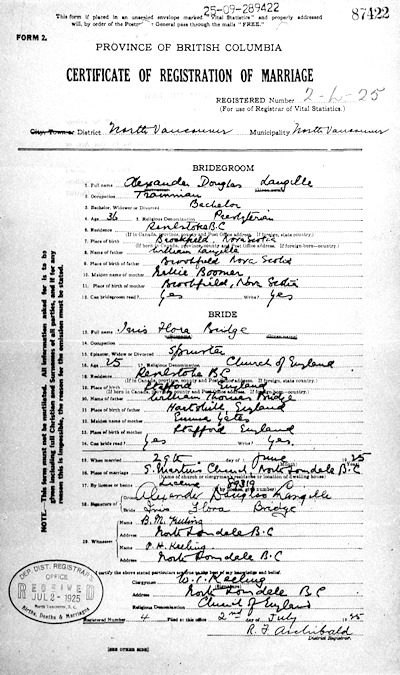 25-09-289422
This form if placed in an unsealed envelope marked "Vital Statistics" and properly addressed
will, by order of the General pass through the mails "FREE."
87422
FORM 2.
PROVINCE OF BRITISH COLUMBIA
CERTIFICATE OF REGISTRATION OF MARRIAGE
REGISTERED Number 2-L-25
(For use of Registrar of Vital Statistics.)
City, Town or District North Vancouver Municipality North Vancouver
BRIDEGROOM
1. Full name Alexander Douglas Langille
2. Occupation Trainman
3. Bachelor, Widower or Divorced Bachelor
4. Age 36 5. Religious Denomination Presbyterian
6. Residence Revelstoke B.C
(If in Canada, province, county and Post Office address. If foreign, state country.)
7. Place of birth Brookfield, Nova Scotia
(If born in Canada, province, county and Post Office address. If foreign born—country.)
8. Name of father William Langille
9. Place of birth of father Brookfield Nova Scotia
10. Maiden name of mother Boomer
11. Place of birth of mother Brookfield, Nova Scotia
12. Can bridegroom read? Yes Write? Yes
BRIDE
13. Full name Iris Flora Bridge
14. Occupation
15. Spinster, Widow or Divorced Spinster
16. Age 25 17. Religious Denomination Church of England
18. Residence Revelstoke B.C
(If in Canada, province, county and Post Office address. If foreign, state country.)
19. Place of birth Stafford England
(If born in Canada, province, county and Post Office address. If foreign born—country.)
20. Name of father William Thomas Bridge
21. Place of birth of father Hartshill England
22. Maiden name of mother Emma Yates
23. Place of birth of mother Stafford England
24. Can bride read? Yes Write? Yes.
25. When married 29th day of June 1925
26. Place of marriage S. Martins Church North Lonsdale B.C
(Name of church or clergyman's residence or location of dwelling house)
27. By license or banns License
28. Signature of Groom Alexander Douglas Langille
Bride Iris Flora Bridge
29. Witnesses Name B.M. Keeling
Address North Lonsdale B.C
Name P.H. Keeling
Address North Lonsdale B.C
I certify the above stated particulars are true to the best of my knowledge and belief.
Clergyman W.T. Keeling
Address North Lonsdale BC
Religious Denomination Church of England
Registered Number 4 Filed at office 2nd day of July 1925
R. F. Archibald
District Registrar.
[SEE OTHER SIDE]
NOTE.—This form must not be mutilated. All information asked for is to be
given including full Christian and Surnames of all parties, and if for any
reason this is impossible, the reason for the omission must be stated.
DEP. DIST. REGISTRAR
OFFICE
RECEIVED
JUL 2 - 1925
North Vancouver, B. C.
Births, Deaths & Marriages